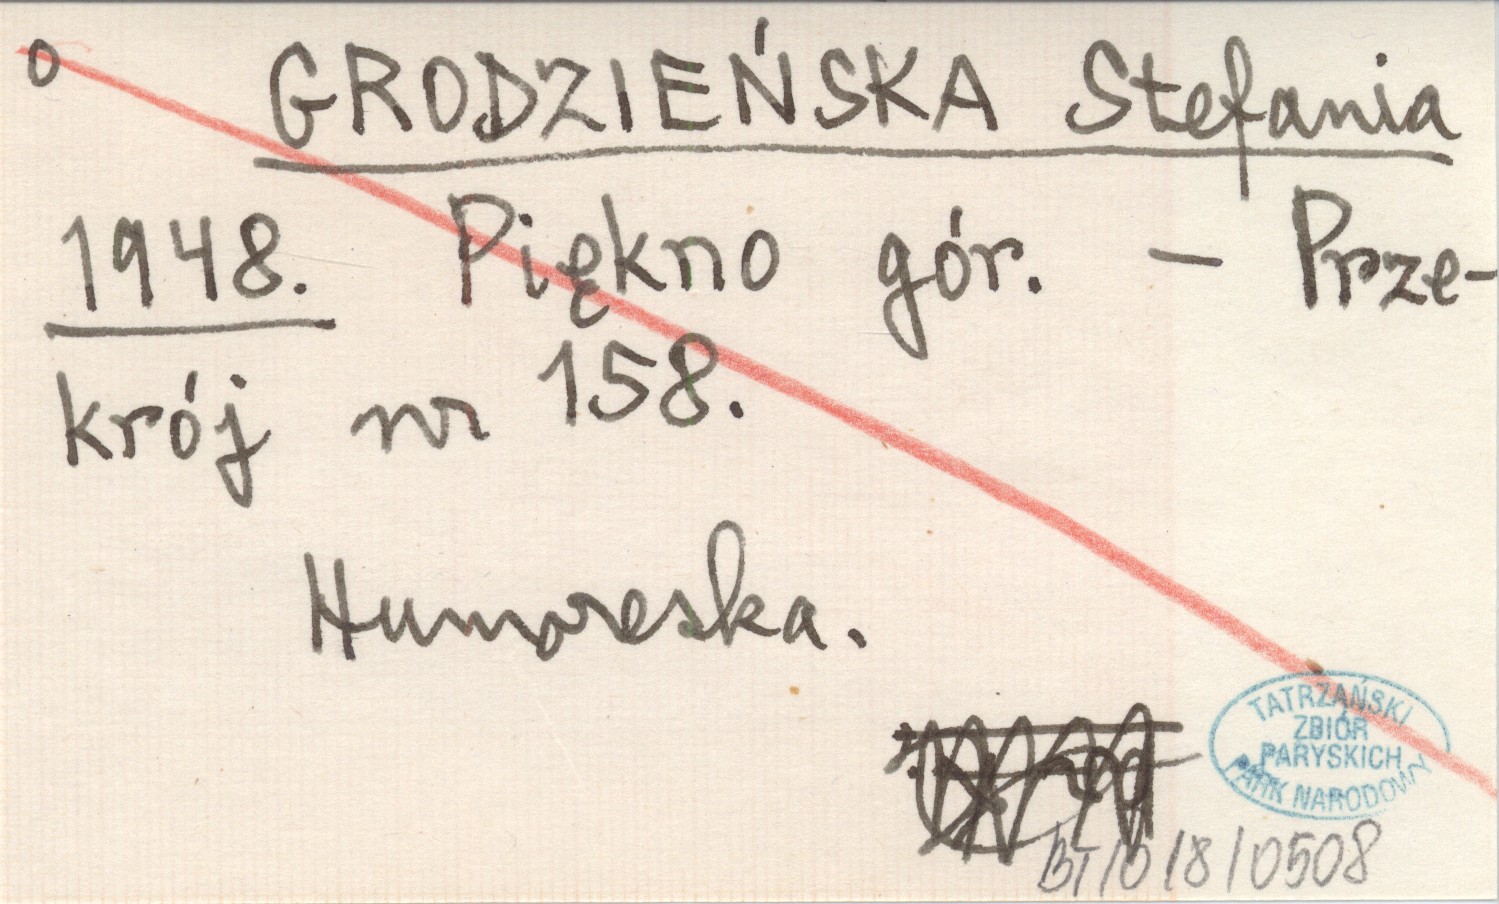 o GRODZIEŃSKA Stefania
1948. Piękno gór. – Prze-
krój nr 158.
Humoreska.
TATRZAŃSKI
ZBIÓR
PARYSKICH
PARK NARODOWY
BT/O/8/0508